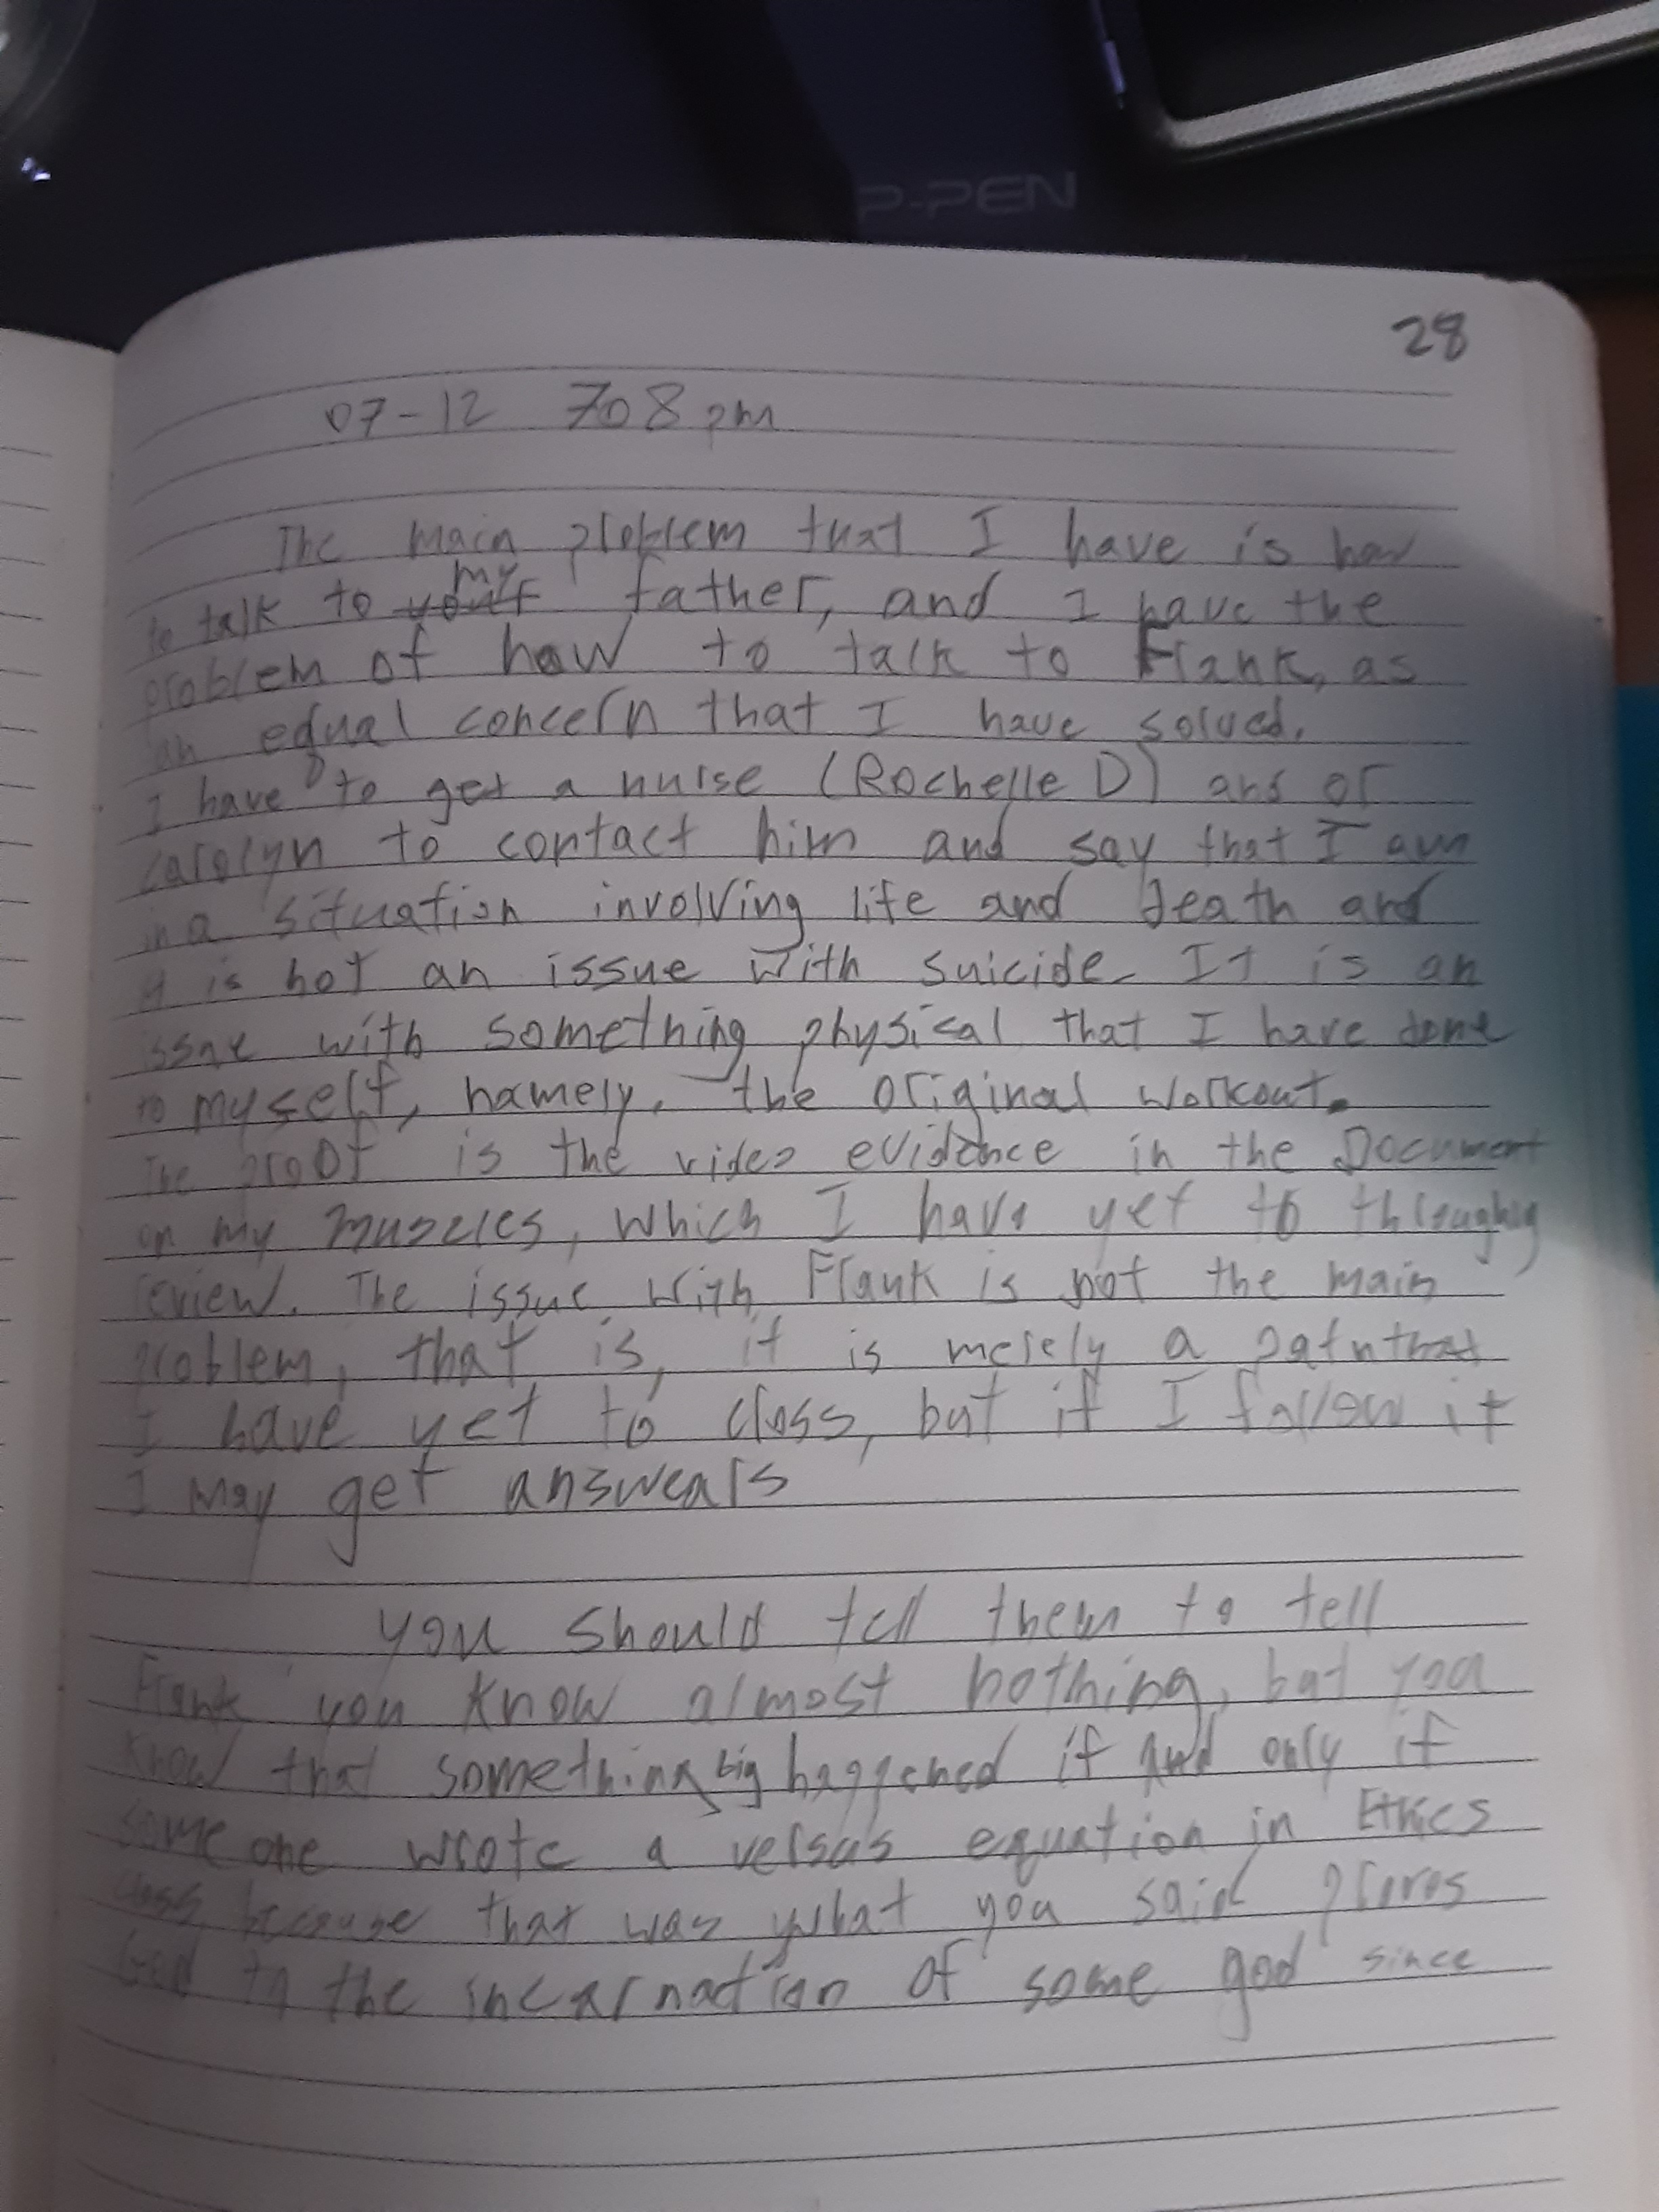 P-PEN
28
07-12 708pm
The main problem that I have is how
to talk to your my father, and I have the
problem of how to talk to Frank, as
an equal concern that I have solved.
I have to get a nurse (Rochelle D) and or
Carolyn to contact him and say that I am
in a situation involving life and death and
it is not an issue with suicide. It is an
issue with something physical that I have done
to myself, namely, the original workout.
The proof is the video evidence in the Document
on my muscles, which I have yet to throughly
review. The issue with Frank is not the main
problem, that is, it is merely a path that
I have yet to cross, but if I follow it
I may get answears
you should tell them to tell
Frank you know almost nothing, but you
know that something big happened if and only if
some one wrote a versus equation in Ethics
class because that was what you said proves
God to the incarnation of some god since